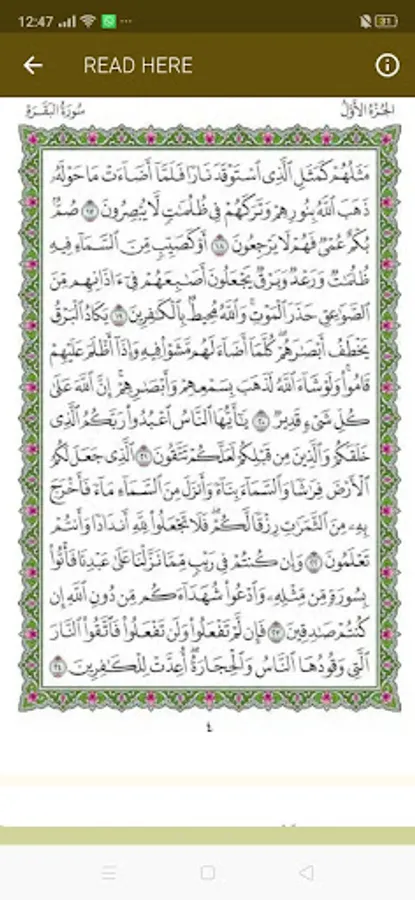 12:47
31
READ HERE
سُورَةُ البَقَرَةِ الجُزْءُ الأَوَّلُ
مَثَلُهُمْ كَمَثَلِ ٱلَّذِى ٱسْتَوْقَدَ نَارًا فَلَمَّآ أَضَآءَتْ مَا حَوْلَهُۥ
ذَهَبَ ٱللَّهُ بِنُورِهِمْ وَتَرَكَهُمْ فِى ظُلُمَٰتٍ لَّا يُبْصِرُونَ ١٧ صُمٌّۢ
بُكْمٌ عُمْىٌ فَهُمْ لَا يَرْجِعُونَ ١٨ أَوْ كَصَيِّبٍ مِّنَ ٱلسَّمَآءِ فِيهِ
ظُلُمَٰتٌ وَرَعْدٌ وَبَرْقٌ يَجْعَلُونَ أَصَٰبِعَهُمْ فِىٓ ءَاذَانِهِم مِّنَ
ٱلصَّوَٰعِقِ حَذَرَ ٱلْمَوْتِ ۚ وَٱللَّهُ مُحِيطٌۢ بِٱلْكَٰفِرِينَ ١٩ يَكَادُ ٱلْبَرْقُ
يَخْطَفُ أَبْصَٰرَهُمْ ۖ كُلَّمَآ أَضَآءَ لَهُم مَّشَوْا۟ فِيهِ وَإِذَآ أَظْلَمَ عَلَيْهِمْ
قَامُوا۟ ۚ وَلَوْ شَآءَ ٱللَّهُ لَذَهَبَ بِسَمْعِهِمْ وَأَبْصَٰرِهِمْ ۚ إِنَّ ٱللَّهَ عَلَىٰ
كُلِّ شَىْءٍ قَدِيرٌ ٢٠ يَٰٓأَيُّهَا ٱلنَّاسُ ٱعْبُدُوا۟ رَبَّكُمُ ٱلَّذِى
خَلَقَكُمْ وَٱلَّذِينَ مِن قَبْلِكُمْ لَعَلَّكُمْ تَتَّقُونَ ٢١ ٱلَّذِى جَعَلَ لَكُمُ
ٱلْأَرْضَ فِرَٰشًا وَٱلسَّمَآءَ بِنَآءً وَأَنزَلَ مِنَ ٱلسَّمَآءِ مَآءً فَأَخْرَجَ
بِهِۦ مِنَ ٱلثَّمَرَٰتِ رِزْقًا لَّكُمْ ۖ فَلَا تَجْعَلُوا۟ لِلَّهِ أَندَادًا وَأَنتُمْ
تَعْلَمُونَ ٢٢ وَإِن كُنتُمْ فِى رَيْبٍ مِّمَّا نَزَّلْنَا عَلَىٰ عَبْدِنَا فَأْتُوا۟
بِسُورَةٍ مِّن مِّثْلِهِۦ وَٱدْعُوا۟ شُهَدَآءَكُم مِّن دُونِ ٱللَّهِ إِن
كُنتُمْ صَٰدِقِينَ ٢٣ فَإِن لَّمْ تَفْعَلُوا۟ وَلَن تَفْعَلُوا۟ فَٱتَّقُوا۟ ٱلنَّارَ
ٱلَّتِى وَقُودُهَا ٱلنَّاسُ وَٱلْحِجَارَةُ ۖ أُعِدَّتْ لِلْكَٰفِرِينَ ٢٤
٤